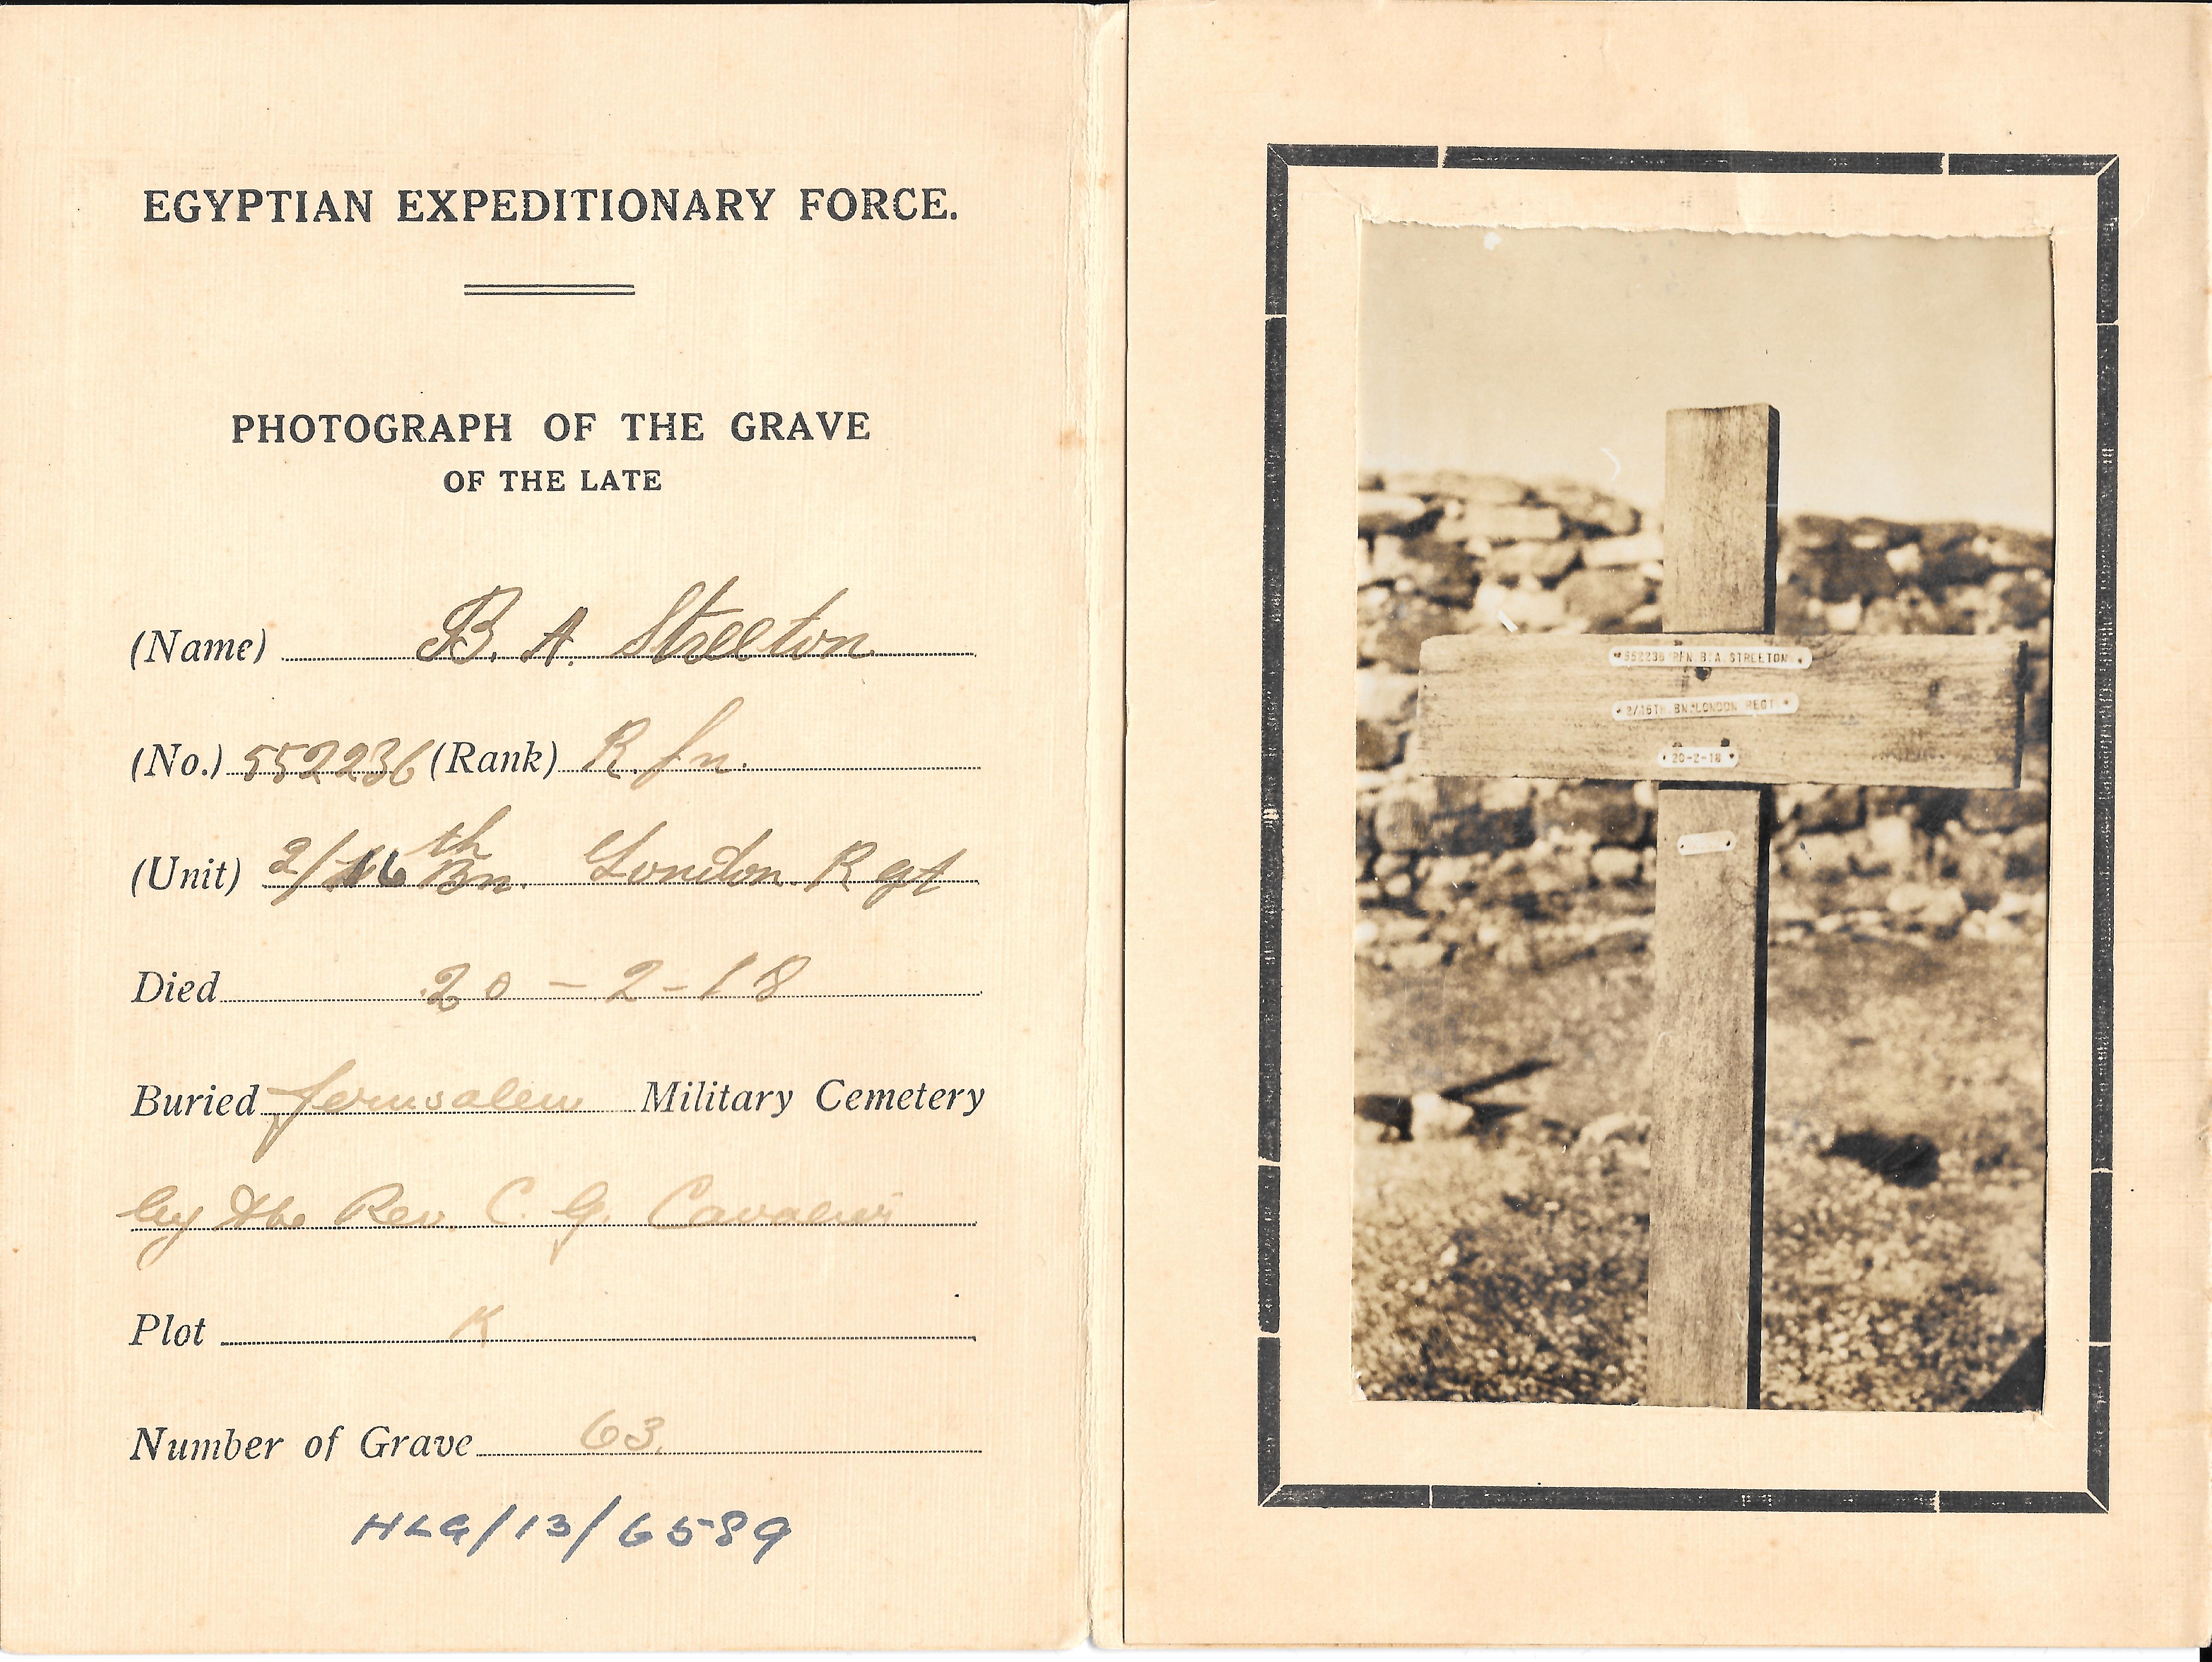 EGYPTIAN EXPEDITIONARY FORCE.
PHOTOGRAPH OF THE GRAVE
OF THE LATE
(Name) B. A. Streeton
(No.) 552236 (Rank) Rfn.
(Unit) 2/16th Bn. London Rgt
Died 20-2-18
Buried Jerusalem Military Cemetery
by the Rev. C. G.
Plot K
Number of Grave 63.
HLG/13/6589
552236 RFN B.A. STREETON
2/16TH BN. LONDON REGT.
20-2-18